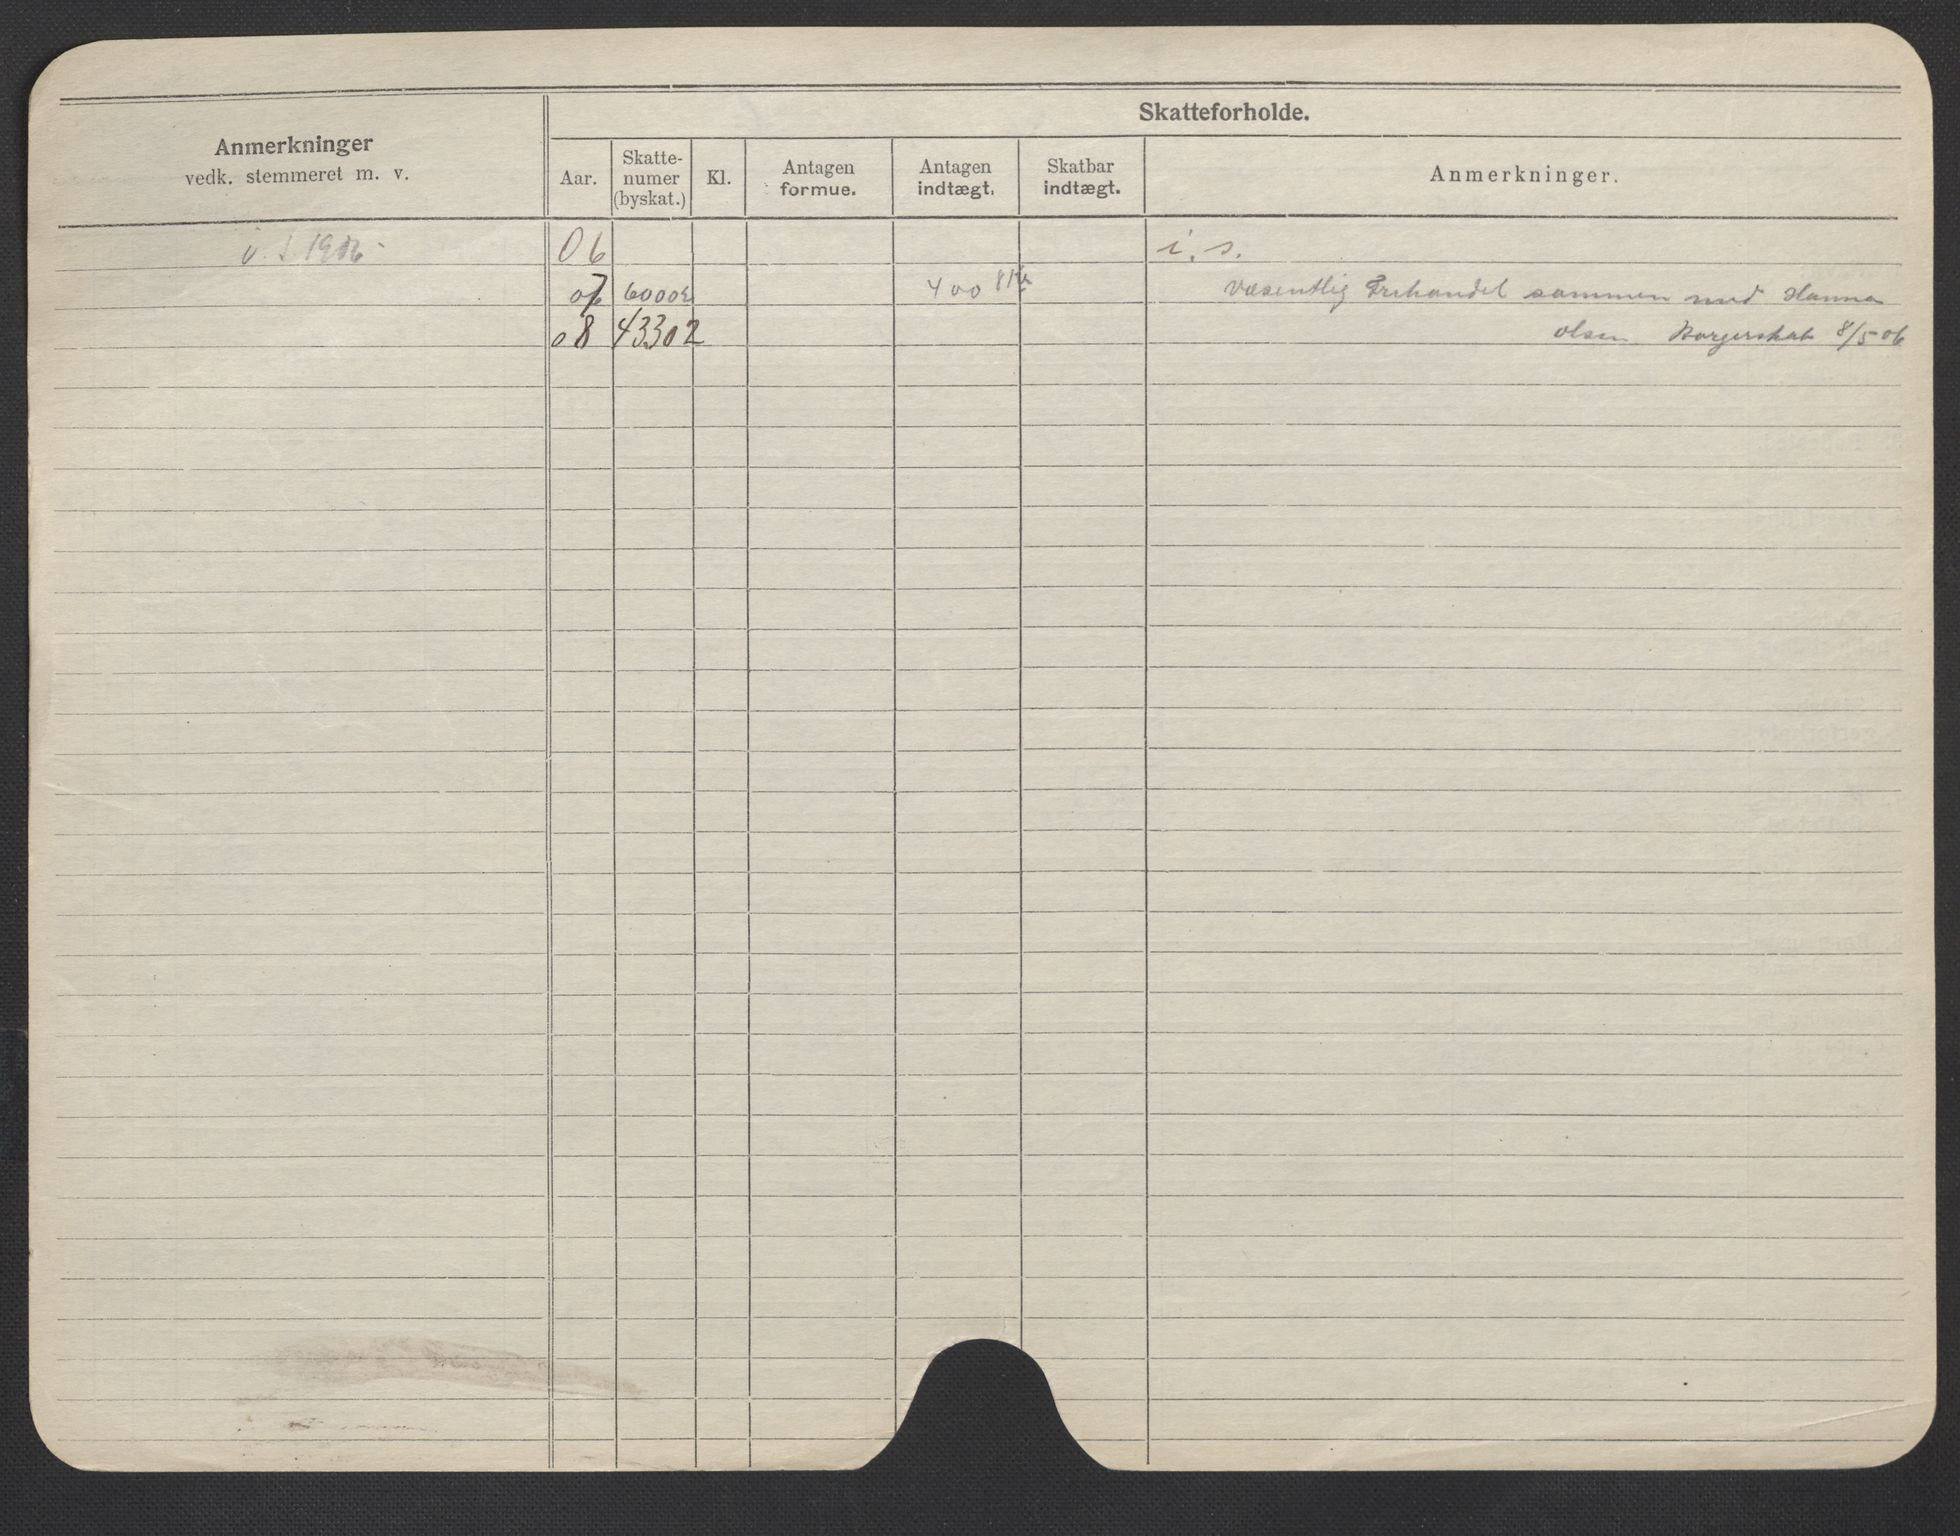 Skatteforholde.
Anmerkninger
vedk. stemmeret m. v.
Aar.
Skatte-
numer
(byskat.)
Kl.
Antagen
formue.
Antagen
indtægt.
Skatbar
indtægt.
Anmerkninger.
1906 06 i. s.
07 60002 400 Væsentlig Frihandel sammen med Hanna
08 43302 Olsen Borgerskab 8/5 06